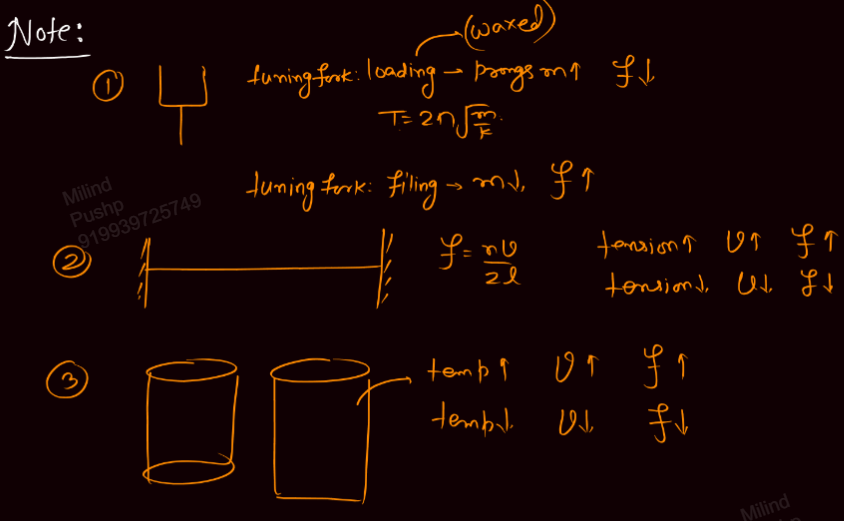 Note:
(waxed)
① tuning fork: loading → prongs m↑ f↓
T = 2π√(m/k)
tuning fork: filing → m↓, f↑
Milind
Pushp
919939725749
② f = nv/2l tension↑ v↑ f↑
tension↓ v↓ f↓
③ temp↑ v↑ f↑
temp↓ v↓ f↓
Milind